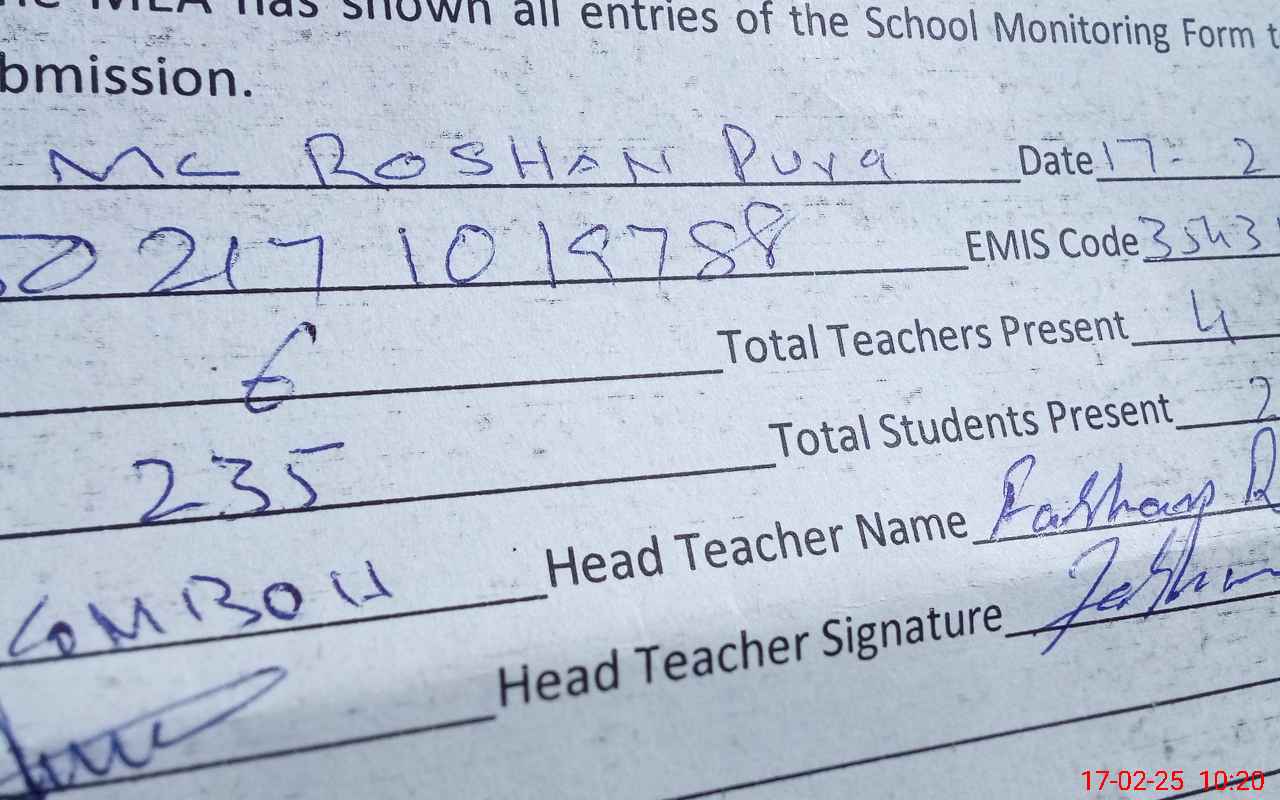 has shown all entries of the School Monitoring Form
bmission.
MC ROSHAN Pura Date 17- 2
0217 1019788 EMIS Code 3543
6 Total Teachers Present 4
235 Total Students Present 2
COMBOH Head Teacher Name
Head Teacher Signature
17-02-25 10:20